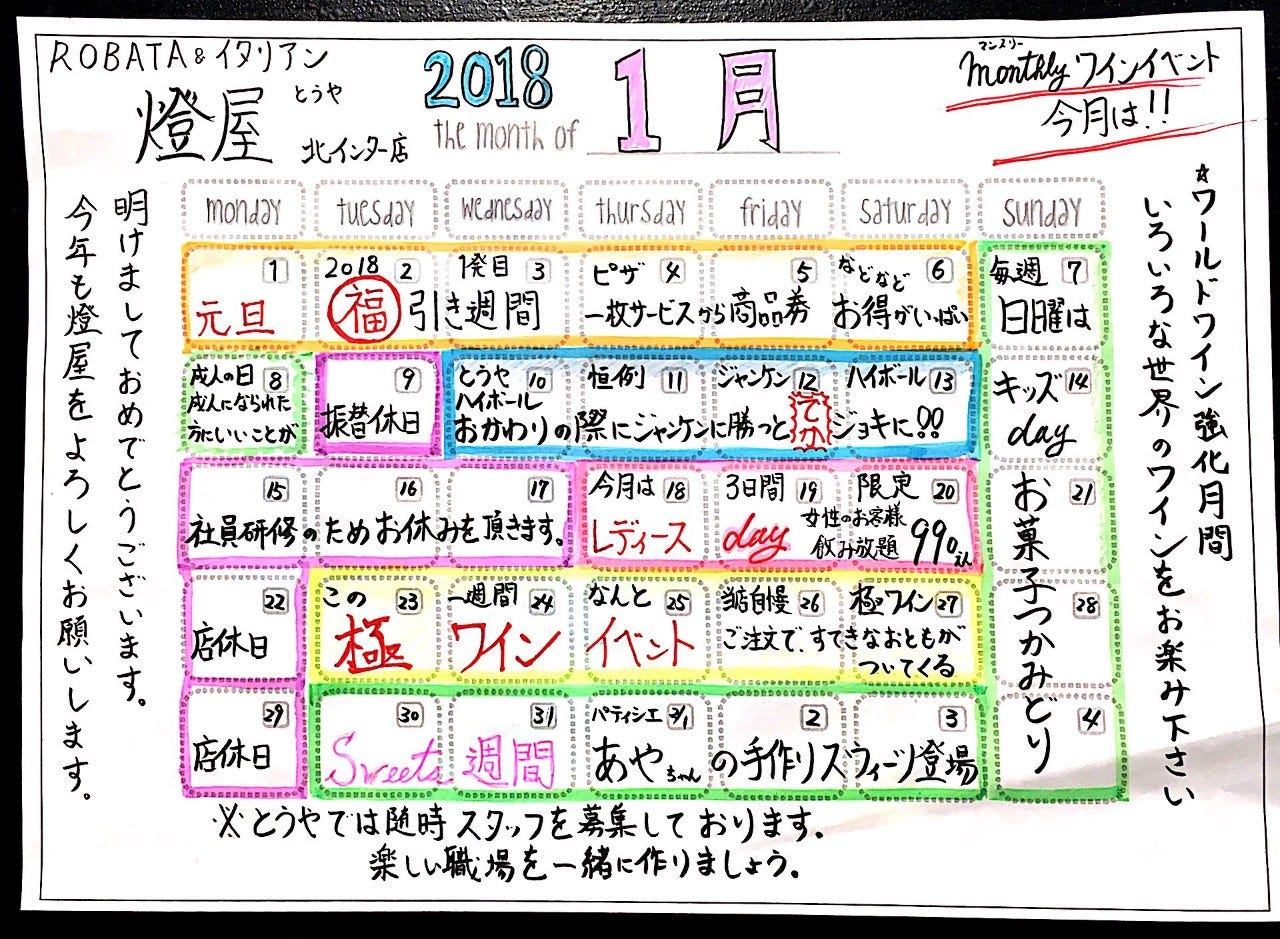 ROBATA&イタリアン
燈屋 とうや
北インター店
2018 1月
the month of
マンスリー
monthly ワインイベント
今月は!!
明けましておめでとうございます。
今年も燈屋をよろしくお願いします。
monday tuesday wednesday thursday friday saturday sunday
1 2018 2 1発目 3 ピザ 4 5 などなど 6 毎週 7
元旦 福引き週間 一枚サービスから商品券 お得がいっぱい 日曜は
成人の日 8 9 とうや 10 恒例 11 ジャンケン 12 ハイボール 13 キッズ 14
成人になられた ハイボール day
方にいいことが 振替休日 おかわりの際にジャンケンに勝つと でか ジョキに!!
15 16 17 今月は 18 3日間 19 限定 20 21
社員研修のためお休みを頂きます。 レディース day 女性のお客様
飲み放題 990
22 この 23 一週間 24 なんと 25 当店自慢 26 極ワイン 27 28
店休日 極 ワイン イベント ご注文で、すてきなおともが
ついてくる
29 30 31 パティシエ 2/1 2 3 4
店休日 Sweets 週間 あやちゃんの手作りスウィーツ登場
お菓子つかみどり
☆ワールドワイン強化月間
いろいろな世界のワインをお楽み下さい
※とうやでは随時スタッフを募集しております。
楽しい職場を一緒に作りましょう。